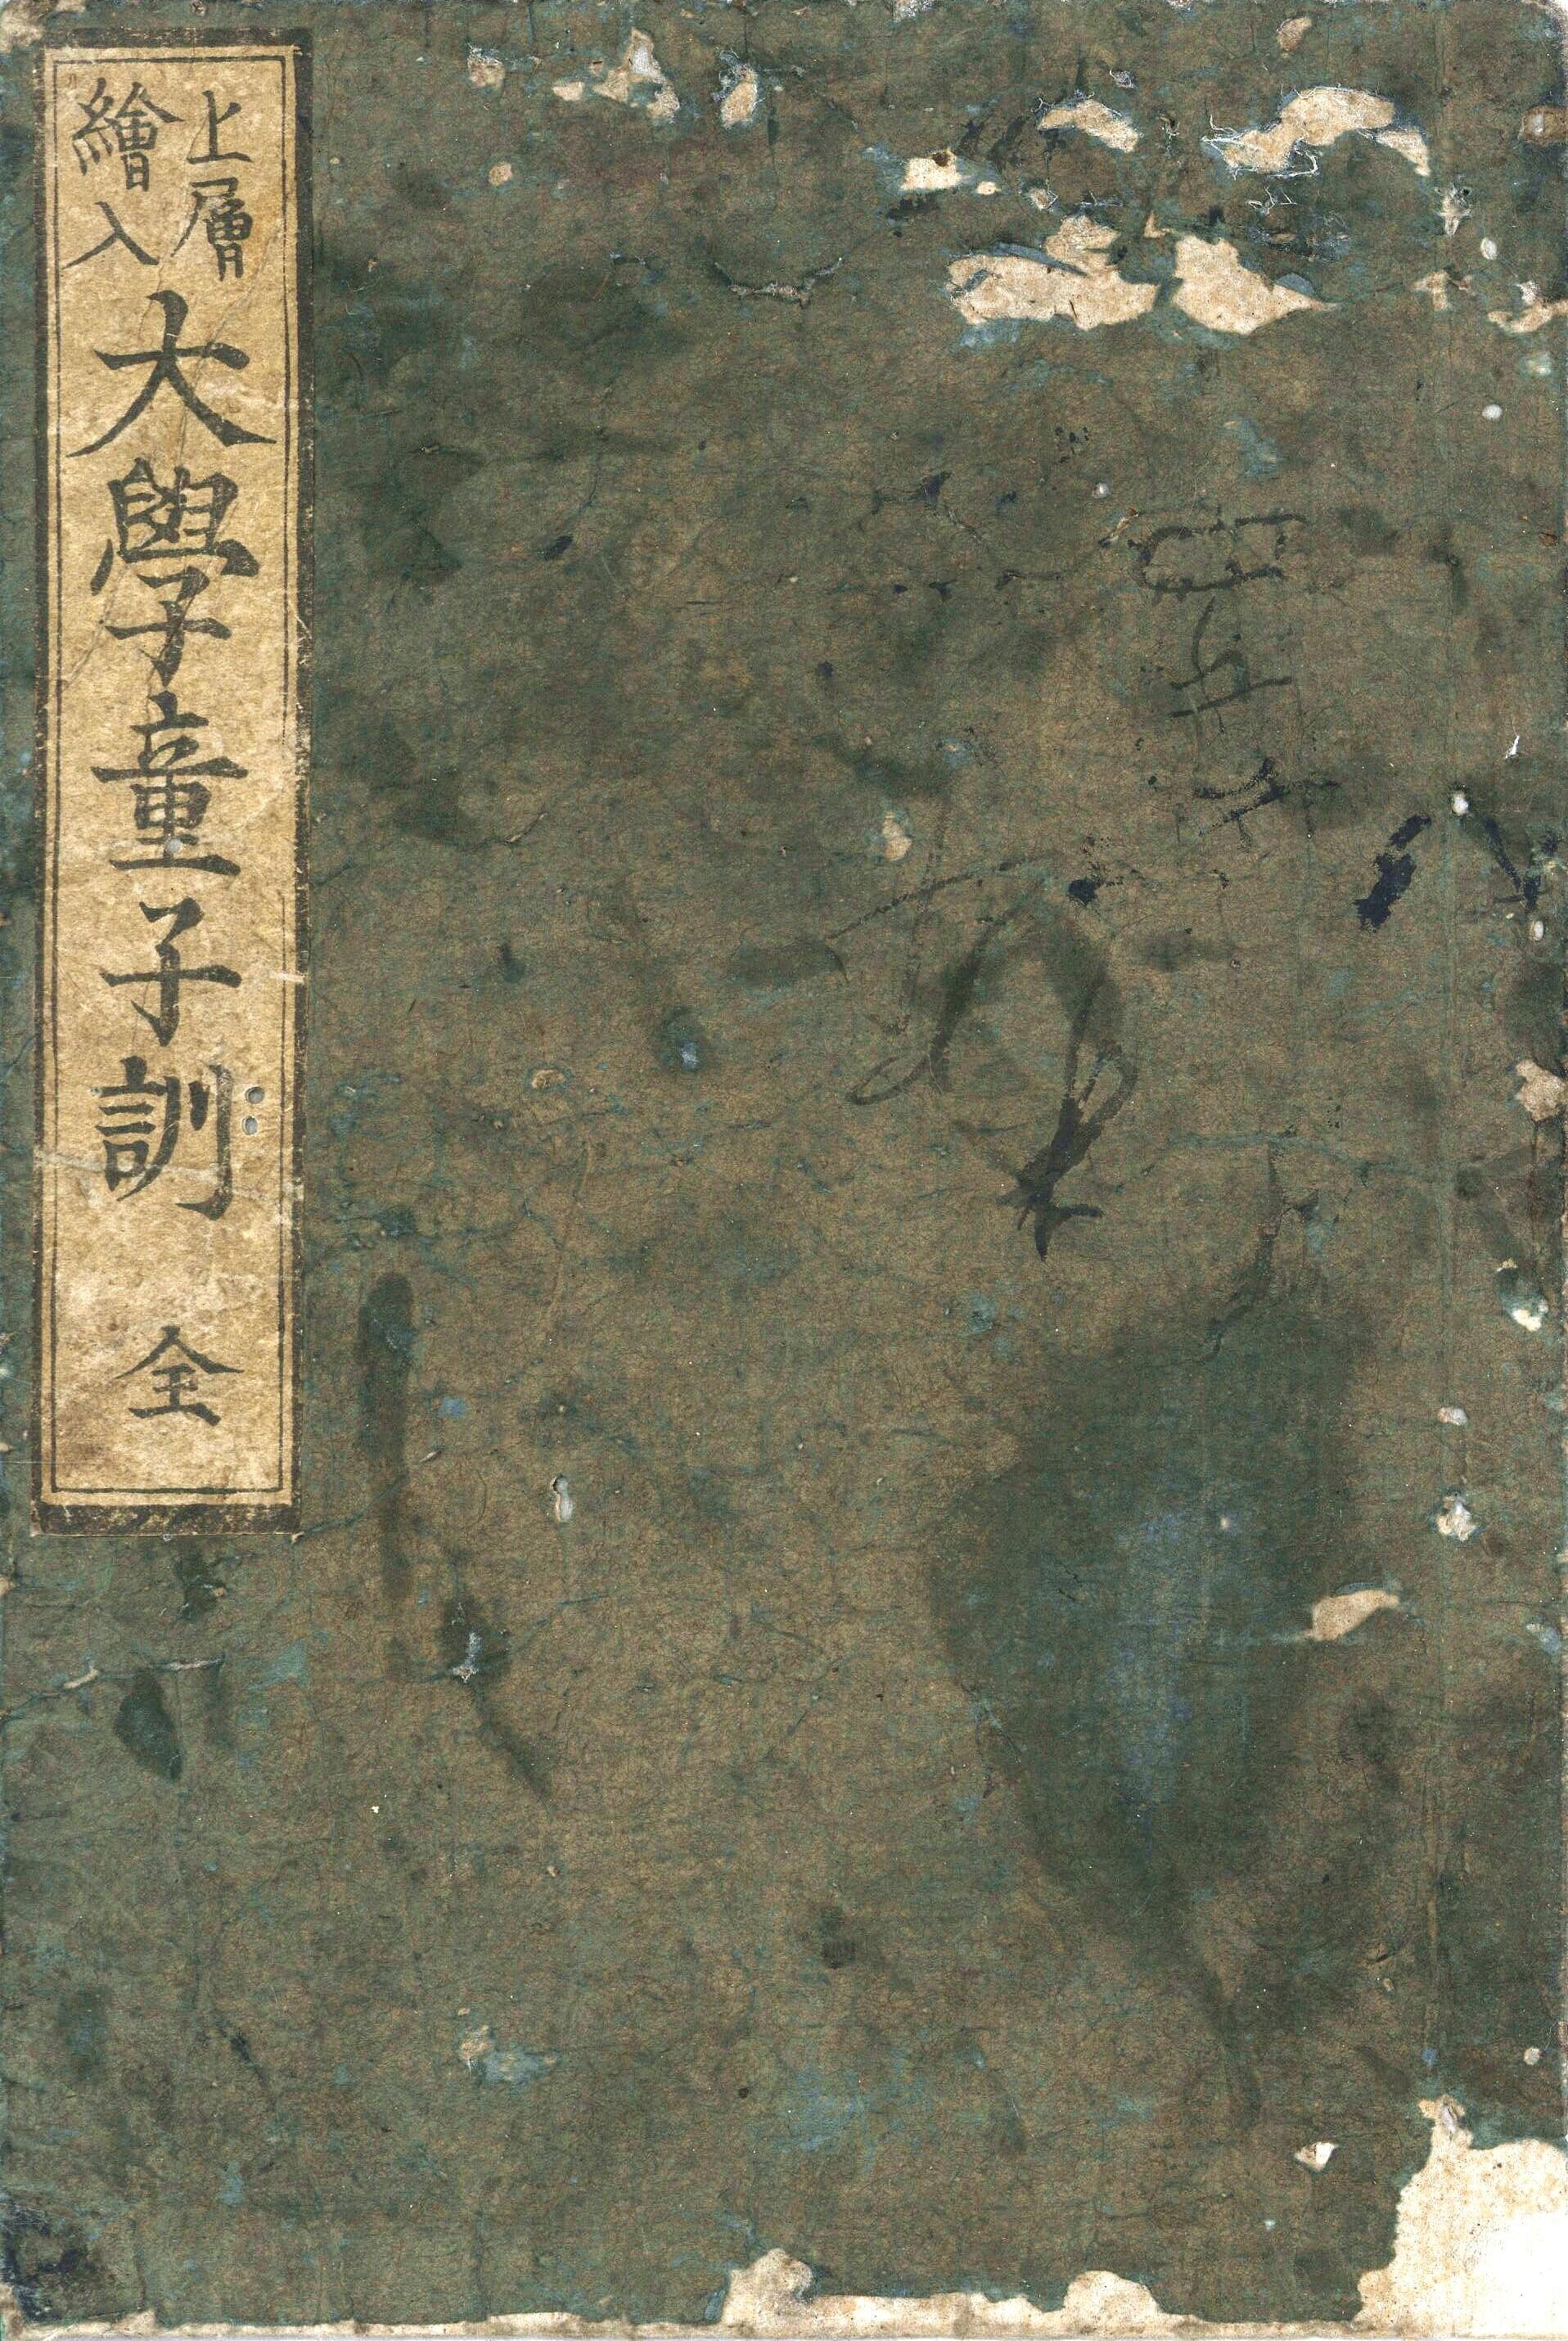 上層
繪入
大學童子訓 全